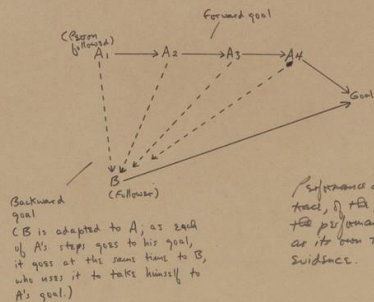 Forward goal
(Person
followed)
A1 A2 A3 A4
Goal
B
(Follower)
Backward
goal
(B is adapted to A; as each
of A's steps goes to his goal,
it goes at the same time to B,
who uses it to take himself to
A's goal.)
Performance
trace, of the
the performan
as its own
evidence.